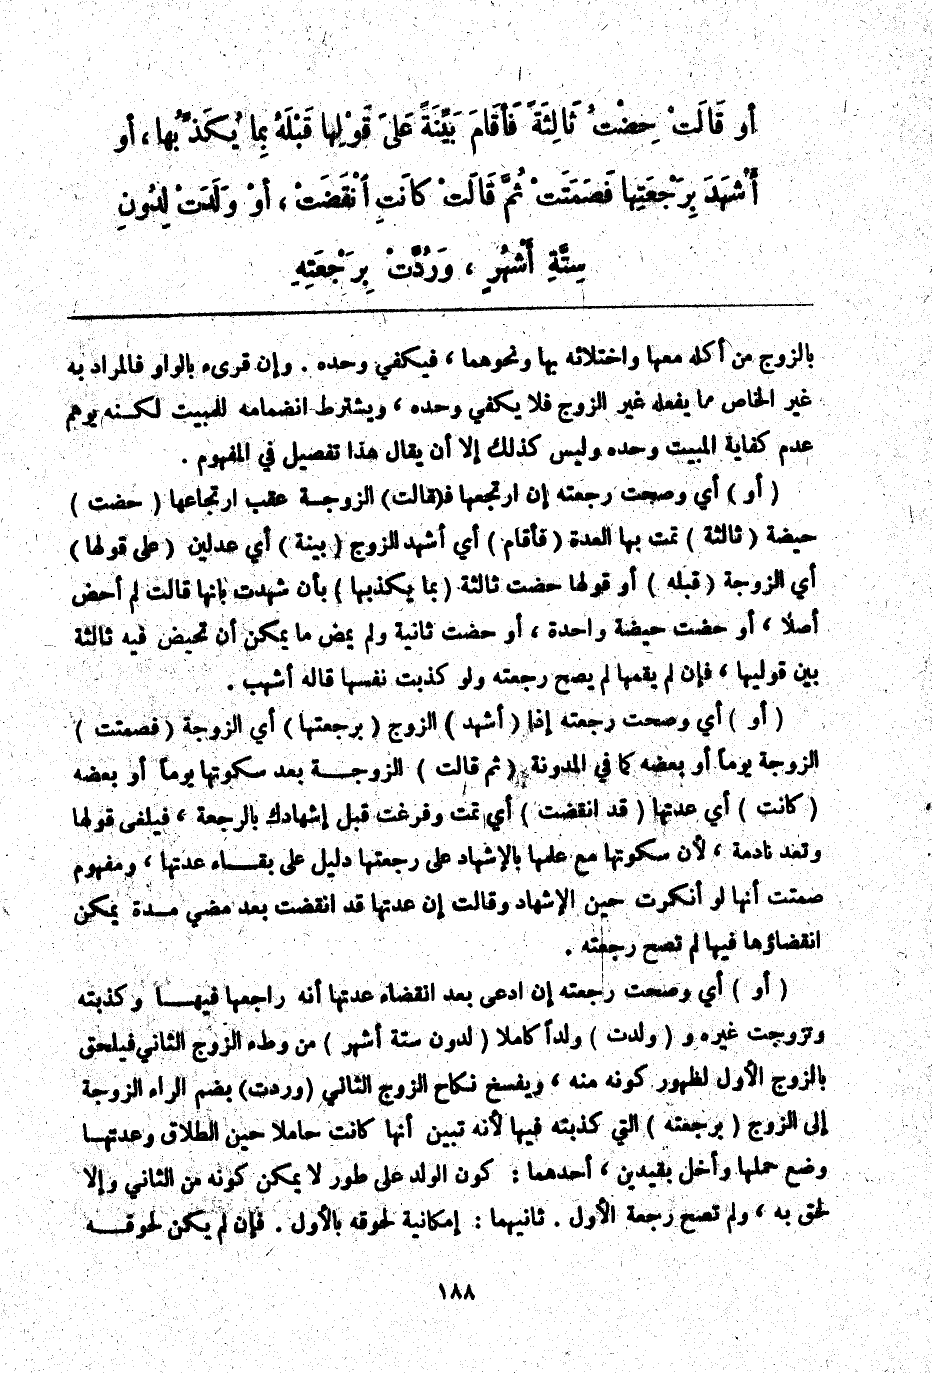 أو قَالَتْ حِضْتُ ثَالِثَةً فَأَقَامَ بَيِّنَةً عَلَى قَوْلِها قَبْلَهُ بِما يُكَذِّبُها ، أو
أَشْهَدَ بِرَجْعَتِها فَصَمَتَتْ ثُمَّ قَالَتْ كانَتِ أنْقَضَتْ ، أوْ وَلَدَتْ لِدُونِ
سِتَّةِ أَشْهُرٍ ، وَرُدَّتْ بِرَجْعَتِهِ
بالزوج من أكله معها واختلائه بها ونحوهما ، فيكفي وحده . وإن قرىء بالواو فالمراد به
غير الخاص مما يفعله غير الزوج فلا يكفي وحده ، ويشترط انضمامه للمبيت لكنه يوهم
عدم كفاية المبيت وحده وليس كذلك إلا أن يقال هذا تفصيل في المفهوم .
( أو ) أي وصحت رجعته إن ارتجعها فـ(قالت) الزوجة عقب ارتجاعها ( حضت )
حيضة ( ثالثة ) تمت بها العدة ( فأقام ) أي أشهد الزوج ( بينة ) أي عدلين ( على قولها )
أي الزوجة ( قبله ) أو قولها حضت ثالثة ( بما يكذبها ) بأن شهدت بانها قالت لم أحض
أصلا ، أو حضت حيضة واحدة ، أو حضت ثانية ولم يمض ما يمكن أن تحيض فيه ثالثة
بين قوليها ، فإن لم يقمها لم يصح رجعته ولو كذبت نفسها قاله أشهب .
( أو ) أي وصحت رجعته إذا ( أشهد ) الزوج ( برجعتها ) أي الزوجة ( فصمتت )
الزوجة يوماً أو بعضه كما في المدونة ( ثم قالت ) الزوجة بعد سكوتها يوماً أو بعضه
( كانت ) أي عدتها ( قد انقضت ) أي تمت وفرغت قبل إشهادك بالرجعة ، فيلغى قولها
وتعد نادمة ، لأن سكوتها مع علمها بالإشهاد على رجعتها دليل على بقاء عدتها ، ومفهوم
صمتت أنها لو أنكرت حين الإشهاد وقالت إن عدتها قد انقضت بعد مضي مدة يمكن
انقضاؤها فيها لم تصح رجعته .
( أو ) أي وصحت رجعته إن ادعى بعد انقضاء عدتها أنه راجعها فيها وكذبته
وتزوجت غيره و ( ولدت ) ولداً كاملا ( لدون ستة أشهر ) من وطء الزوج الثاني فيلحق
بالزوج الأول لظهور كونه منه ، ويفسخ نكاح الزوج الثاني (وردت) بضم الراء الزوجة
إلى الزوج ( برجعته ) التي كذبته فيها لأنه تبين أنها كانت حاملا حين الطلاق وعدتها
وضع حملها وأخل بقيدين ، أحدهما : كون الولد على طور لا يمكن كونه من الثاني وإلا
لحق به ، ولم تصح رجعة الأول . ثانيهما : إمكانية لحوقه بالأول . فإن لم يكن لحوقه
١٨٨